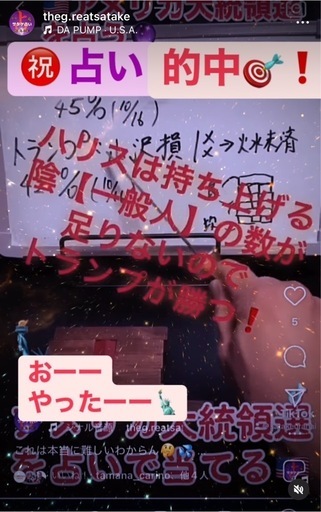 theg.reatsatake
DA PUMP · U.S.A.
アメリカ大統領選
㊗占い 的中🎯❗
45% (10/16)
トランプ
沢損
火水未済
ハリスは持ち上げる
陰【一般人】の数が
足りないので
トランプが勝つ❗
5
おーー
やったーー🗽
TikTok
theg.reatsa
アメリカ大統領選
これは本当に難しいわからん
を占いで当てる
tamana_carino、他4人